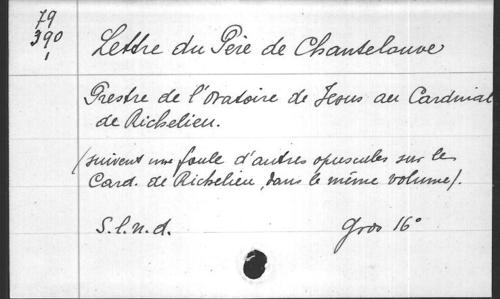 79
390
1
Lettre du Père de Chantelouve
Prestre de l'Oratoire de Jesus au Cardinal
de Richelieu.
(suivent une foule d'autres opuscules sur le
Card. de Richelieu, dans le même volume).
S.l.n.d. Gros 16°